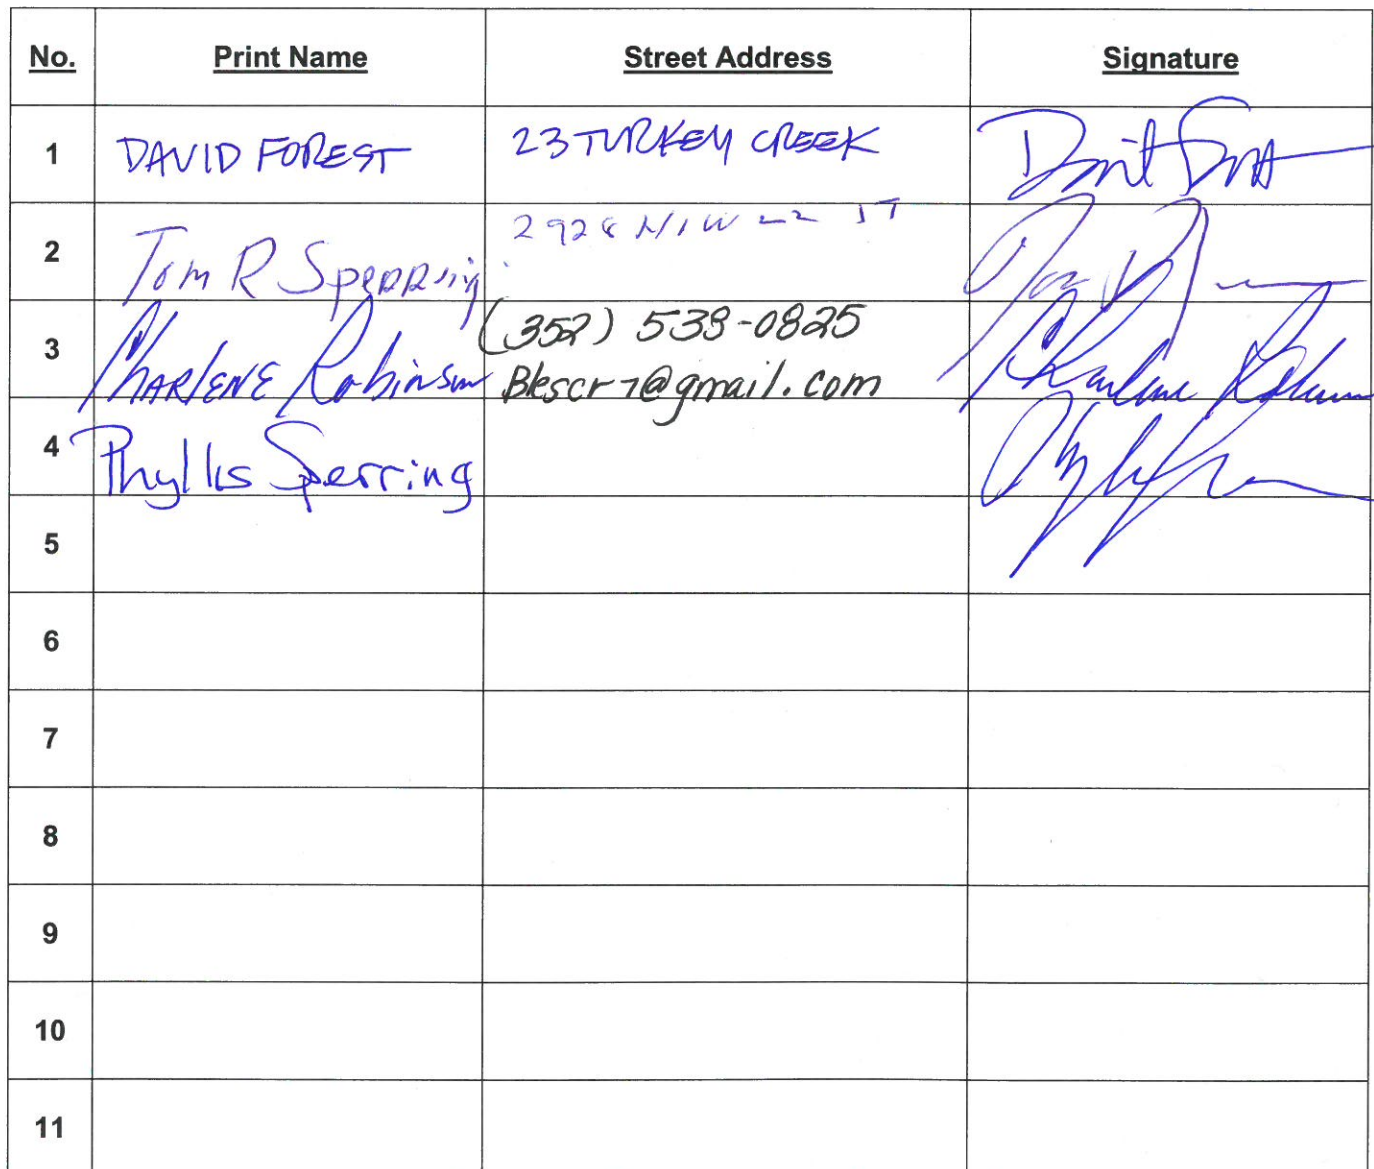 No. Print Name Street Address Signature
1 DAVID FOREST 23 TURKEY CREEK
2 Tom R Sperring 2928 NW 22 ST
3 CHARLENE Robinson (352) 538-0825
Blescr7@gmail.com
4 Phyllis Sperring
5
6
7
8
9
10
11